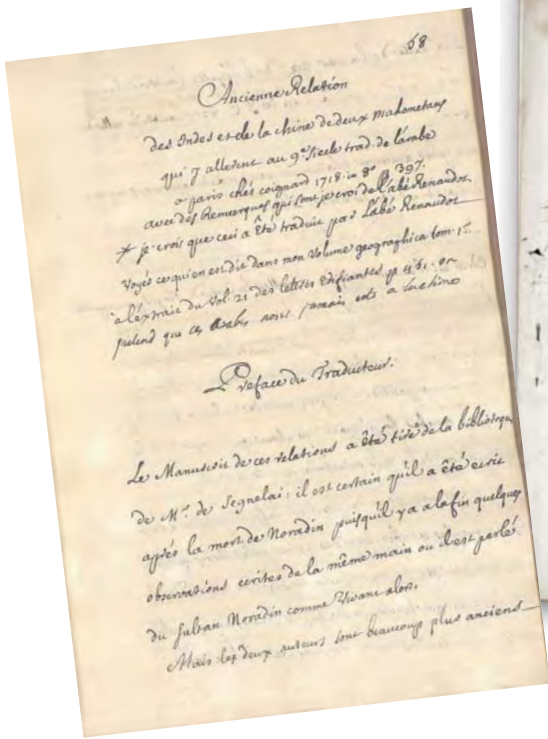 68
Ancienne Relation
des Indes et de la chine de deux mahometans
qui y allerent au 9e siecle trad. de l'arabe
a paris chés coignard 1718. in 8° p 397.
avec des Remarques qui sont je croi de l'abé Renaudot.
* je crois que ceci a Eté traduit par l'abé Renaudot
voyés ce qui en est dit dans mon volume geographica tom. 1er
a l'extrait du vol. 21 des lettres edifiantes p 461. on
pretend que ces Arabes n'ont jamais etés a la chine
Preface du Traducteur.
Le Manuscrit de ces relations a été tiré de la biblioteque
de Mr. de Segnelai; il est certain qu'il a été ecrit
aprés la mort de Noradin puisqu'il y a a la fin quelques
observations ecrites de la même main ou il est perlé
du sultan Noradin comme vivant alors.
Mais les deux auteurs sont beaucoup plus anciens